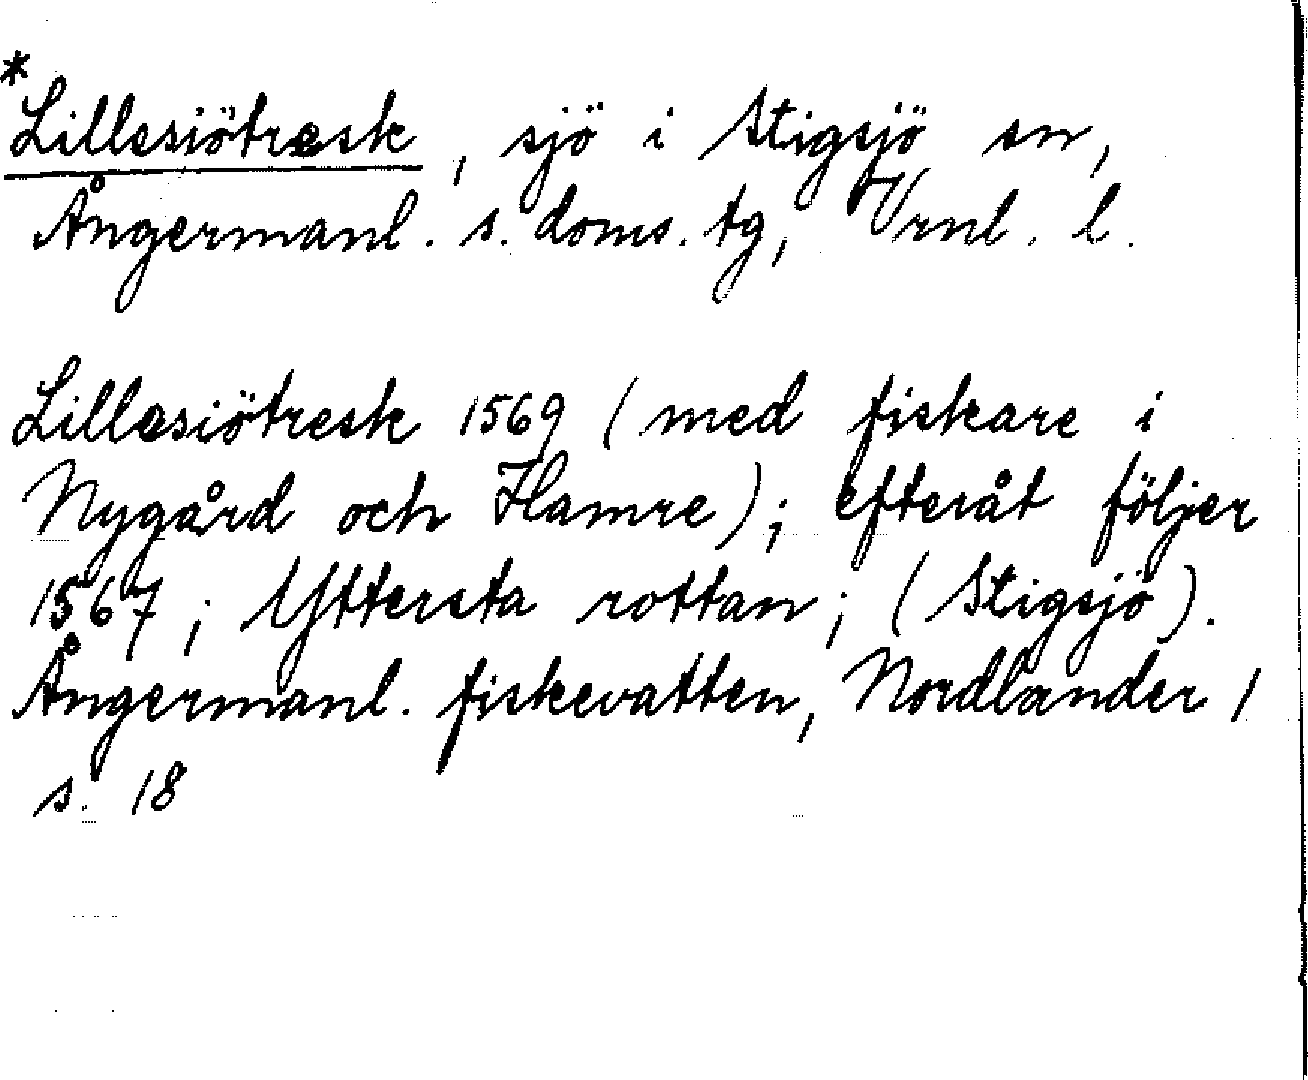 *Lillesiötresk, sjö i Stigsjö sn,
Ångermanl. s. doms. tg, Vrnl. l.
Lillesiötresk 1569 (med fiskare i
Nygård och Hamre); efteråt följer
1567; Yttersta rottan; (Stigsjö).
Ångermanl. fiskevatten, Nordlander,
s. 18